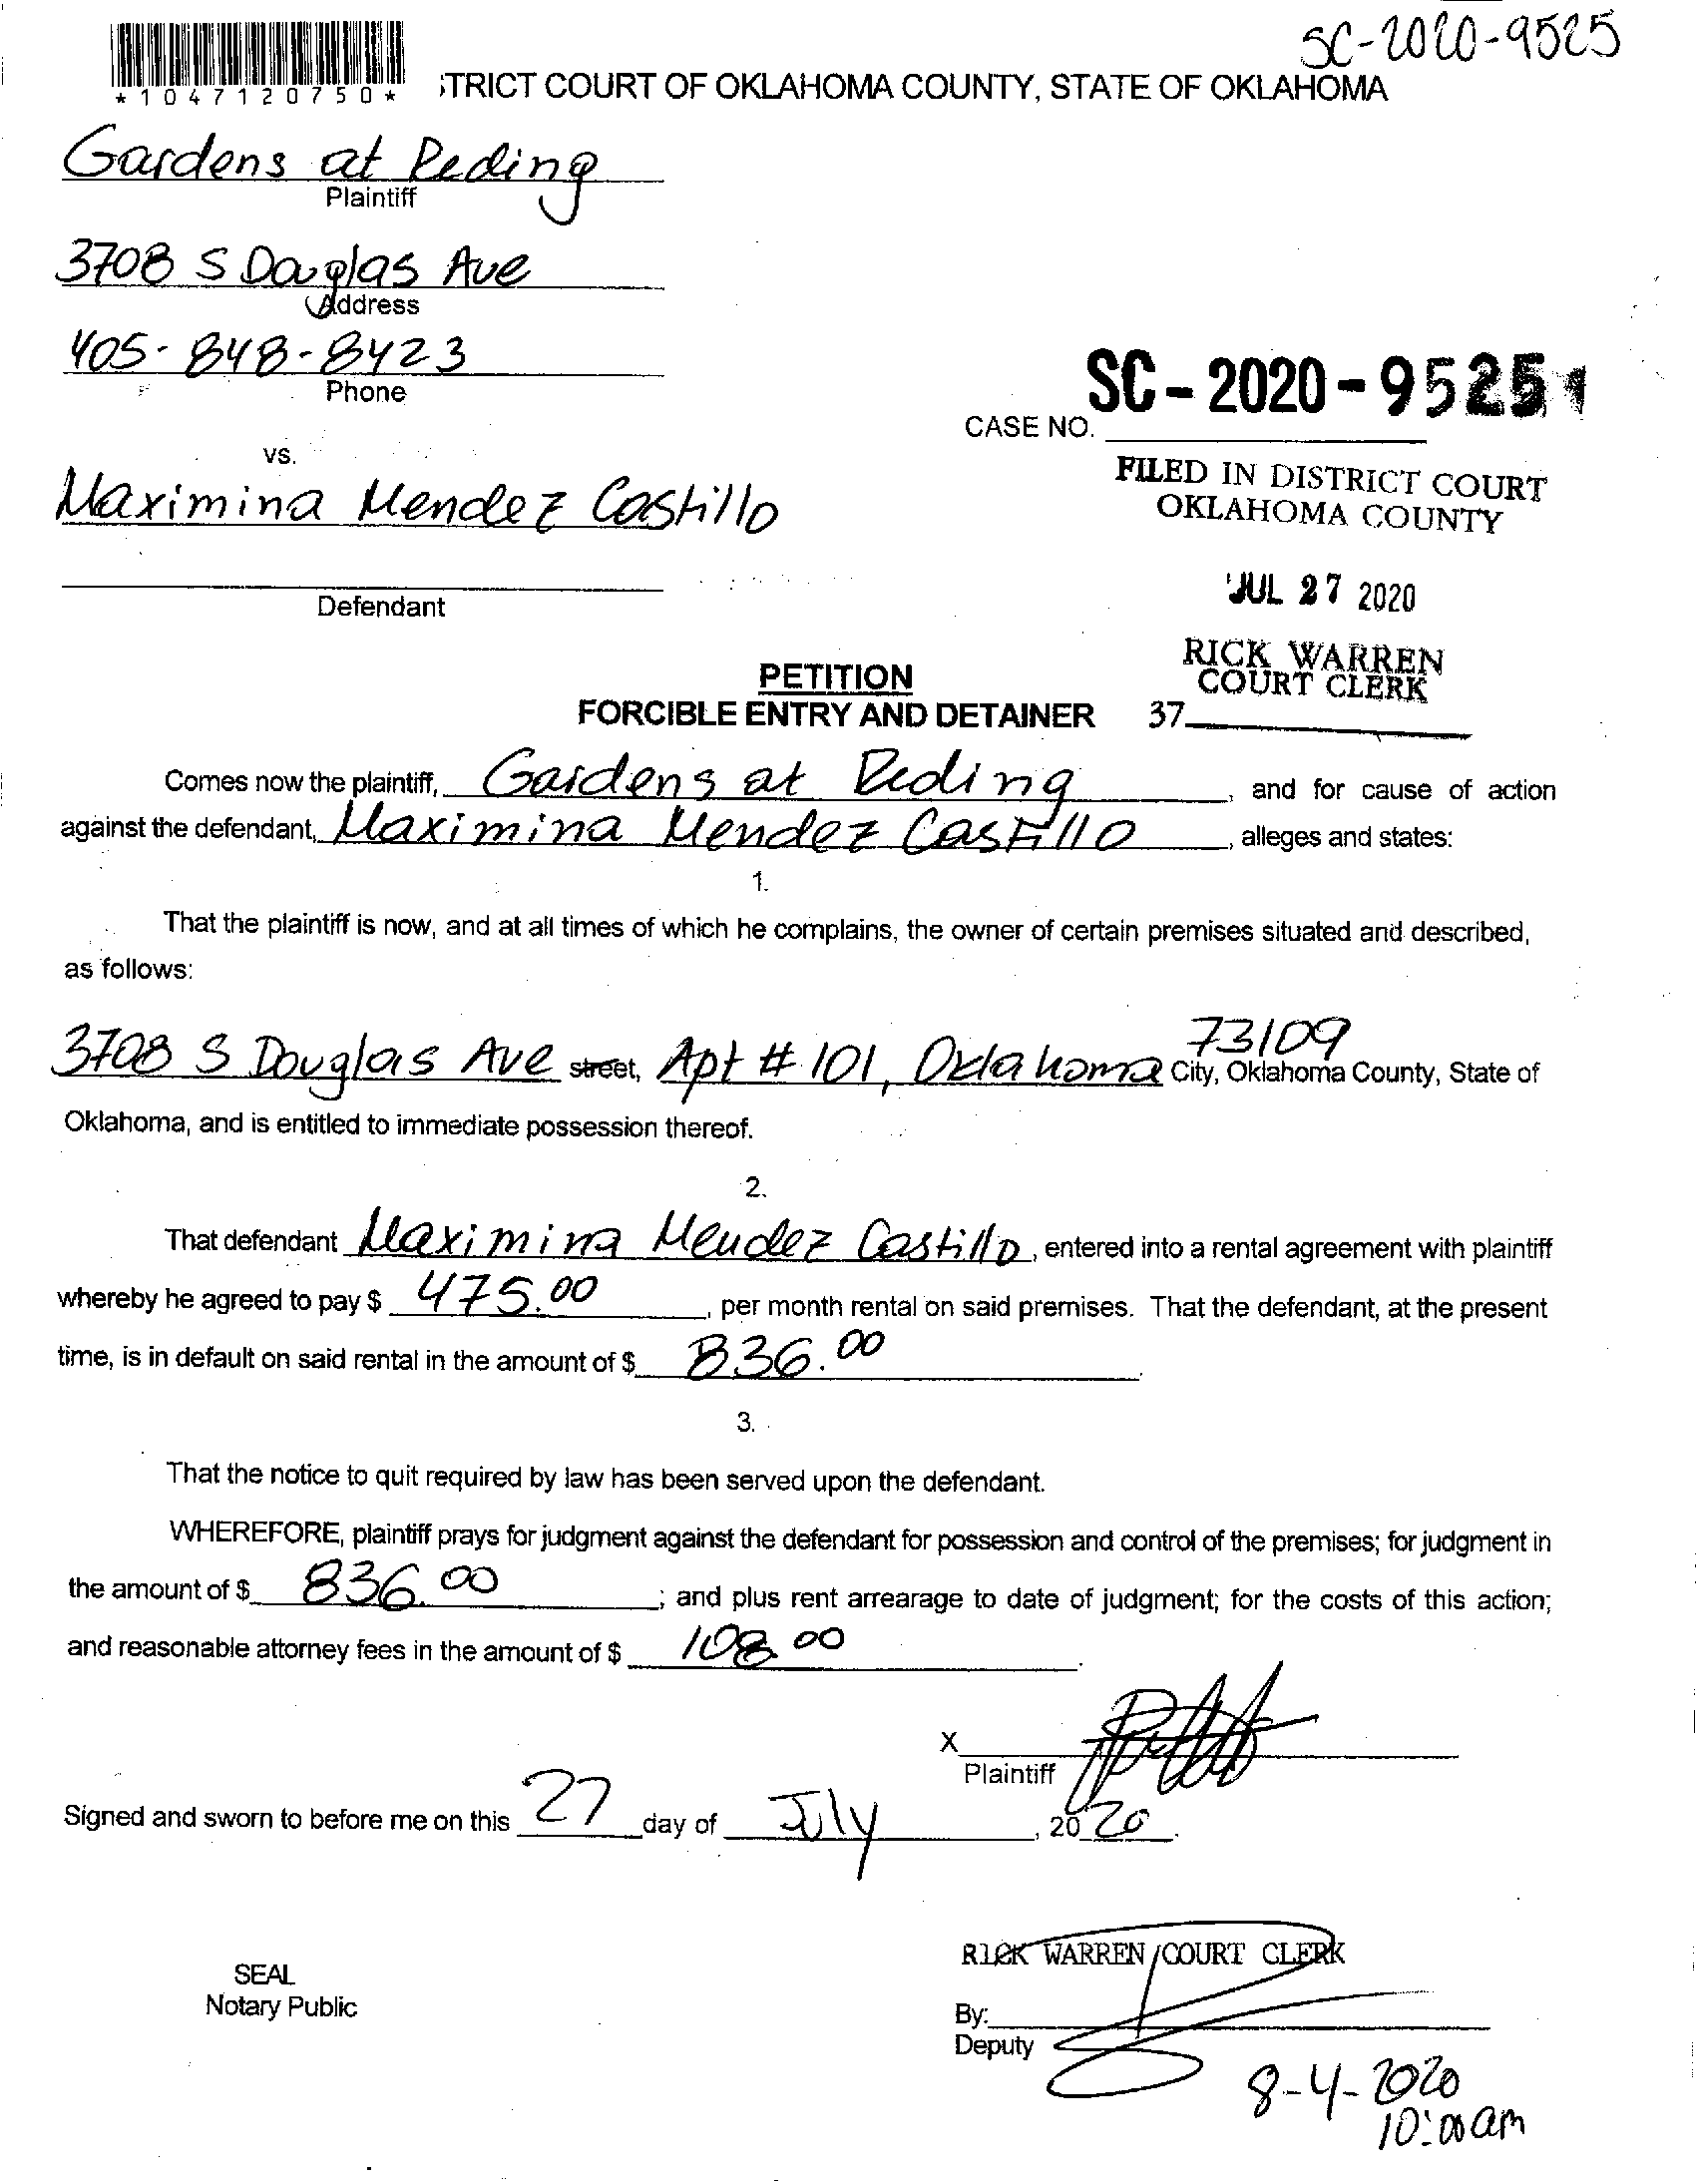 SC-2020-9525
*1047120750*
TRICT COURT OF OKLAHOMA COUNTY, STATE OF OKLAHOMA
Gardens at Reding
Plaintiff
3708 S Douglas Ave
Address
405-848-8423
Phone
SC-2020-9525
CASE NO.
FILED IN DISTRICT COURT
OKLAHOMA COUNTY
vs.
Maximina Mendez Castillo
Defendant
JUL 27 2020
RICK WARREN
COURT CLERK
37
PETITION
FORCIBLE ENTRY AND DETAINER
Comes now the plaintiff, Gardens at Reding, and for cause of action
against the defendant, Maximina Mendez Castillo, alleges and states:
1.
That the plaintiff is now, and at all times of which he complains, the owner of certain premises situated and described,
as follows:
73109
3708 S Douglas Ave street, Apt # 101, Oklahoma City, Oklahoma County, State of
Oklahoma, and is entitled to immediate possession thereof.
2.
That defendant Maximina Mendez Castillo, entered into a rental agreement with plaintiff
whereby he agreed to pay $ 475.00, per month rental on said premises. That the defendant, at the present
time, is in default on said rental in the amount of $ 836.00.
3.
That the notice to quit required by law has been served upon the defendant.
WHEREFORE, plaintiff prays for judgment against the defendant for possession and control of the premises; for judgment in
the amount of $ 836.00; and plus rent arrearage to date of judgment; for the costs of this action;
and reasonable attorney fees in the amount of $ 108.00.
X
Plaintiff
Signed and sworn to before me on this 27 day of July, 2020.
RICK WARREN COURT CLERK
SEAL
Notary Public
By:
Deputy
8-4-2020
10:00am